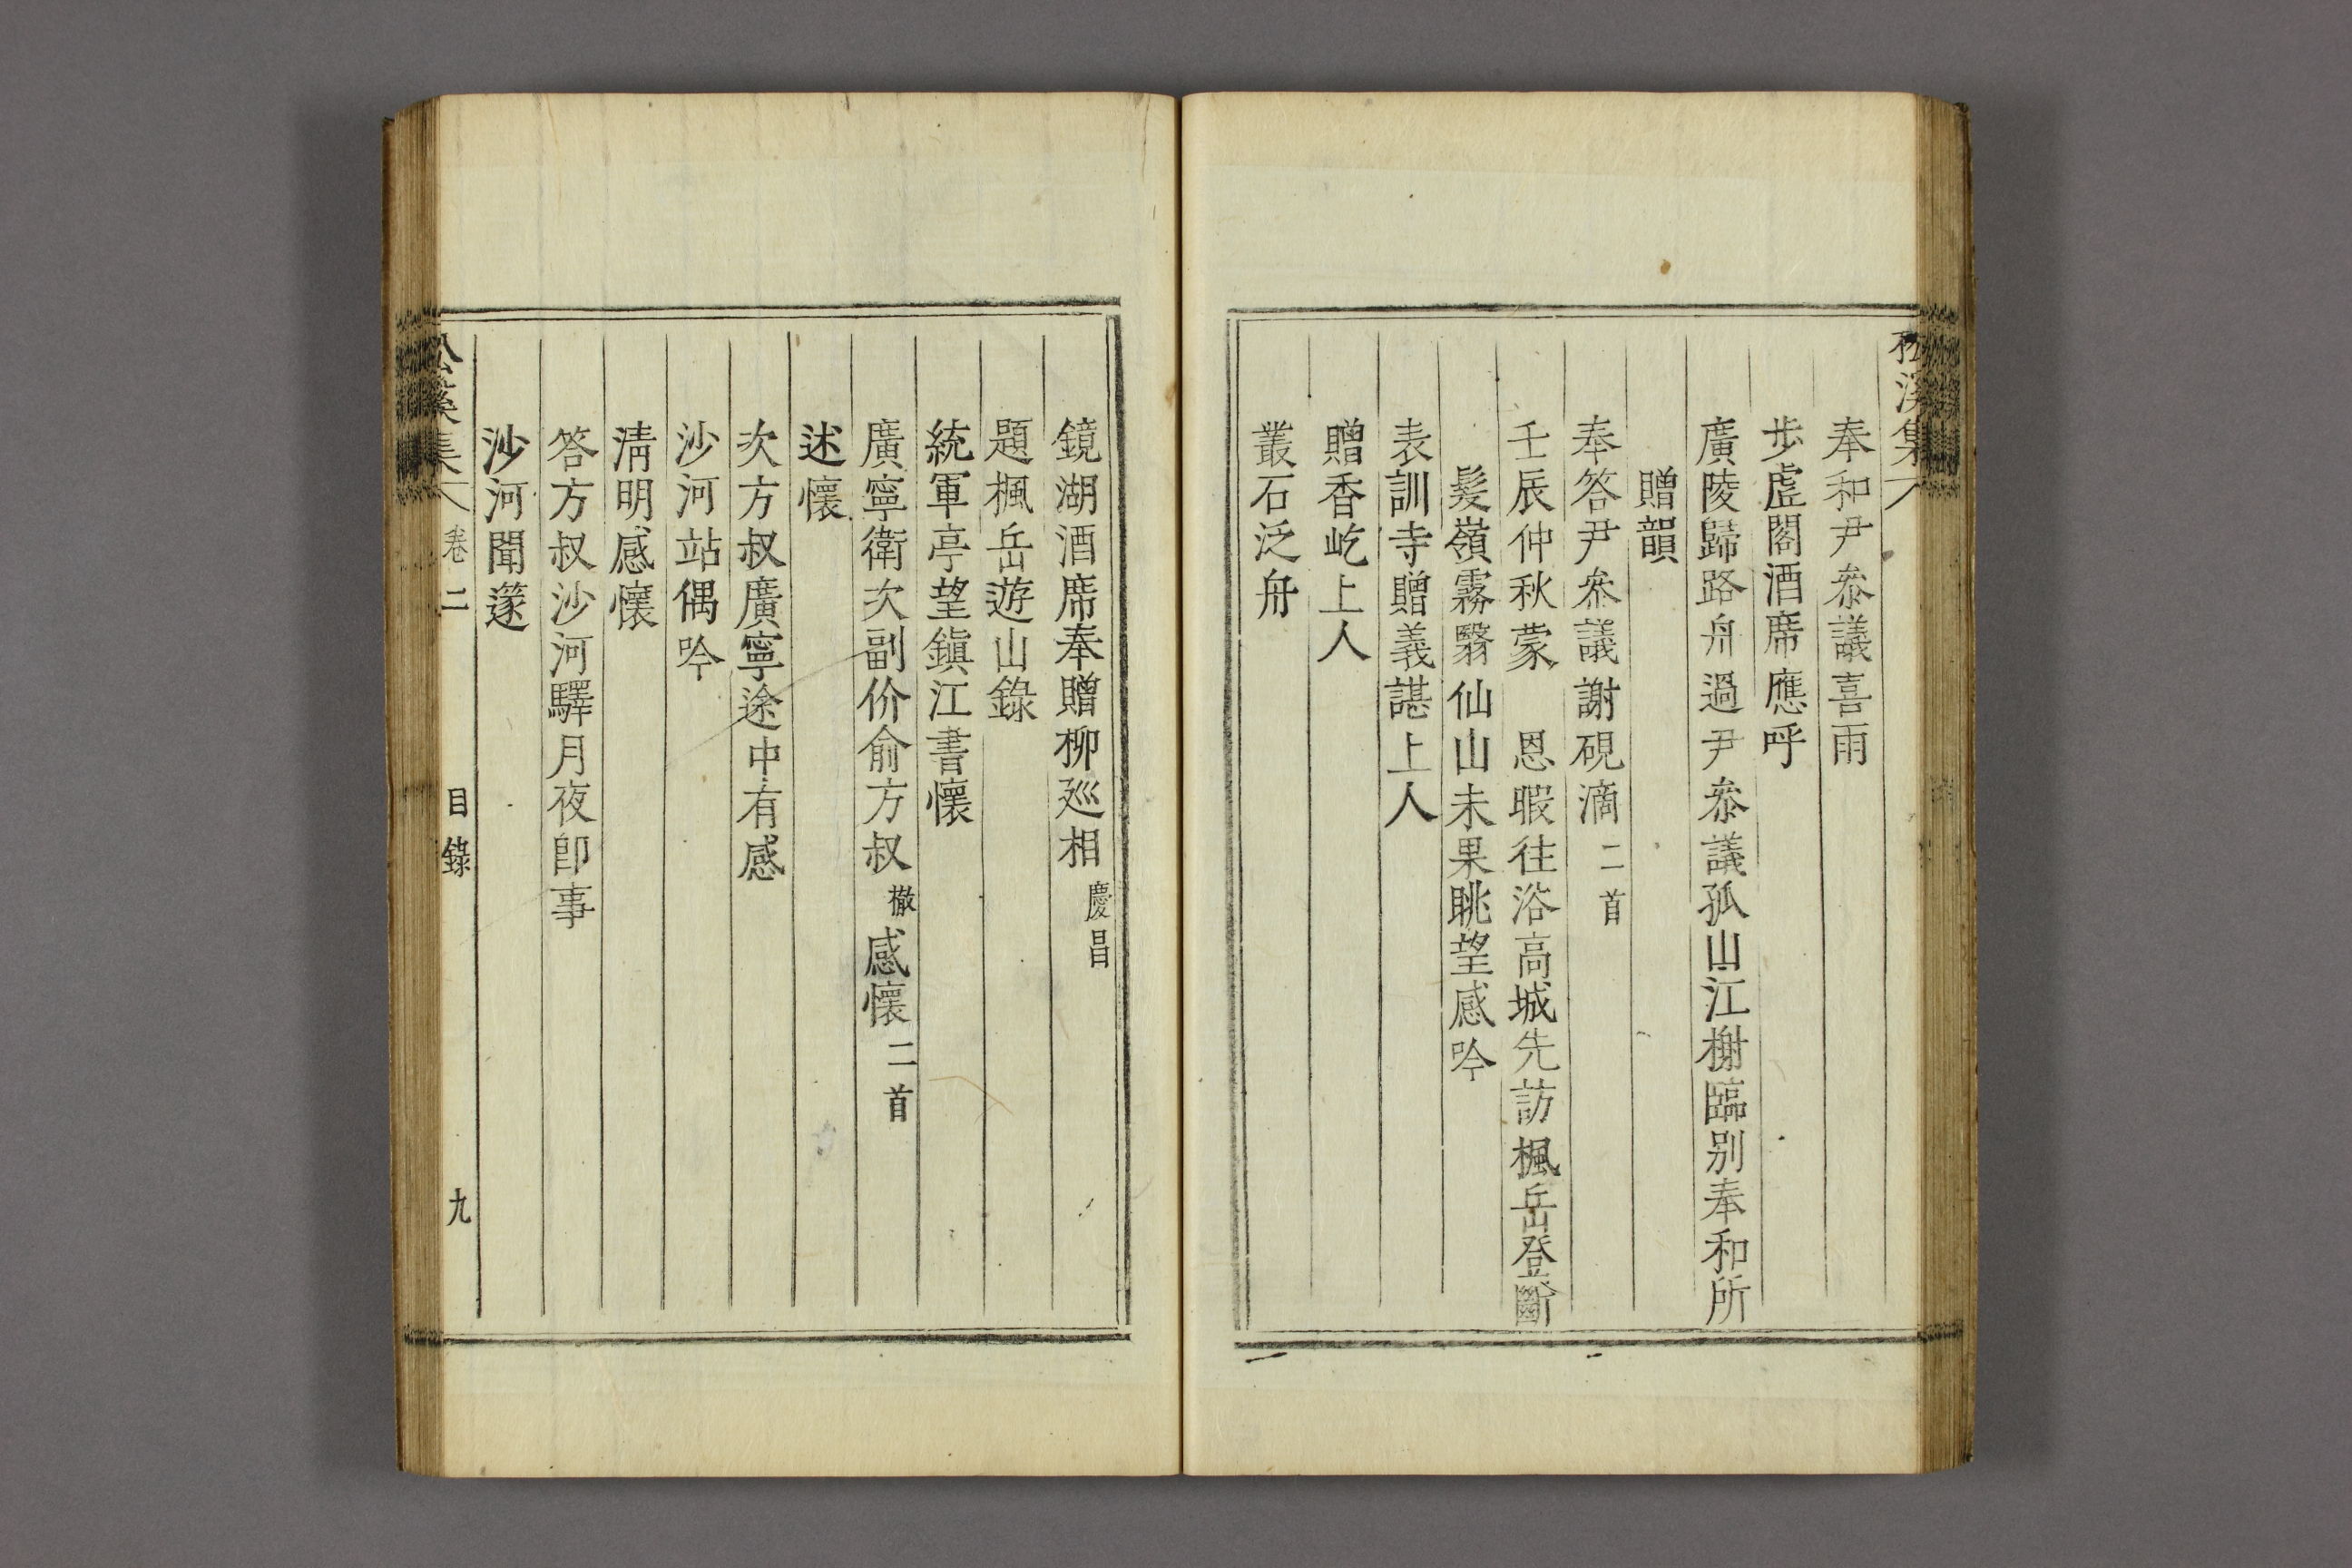 松溪集
奉和尹叅議喜雨
步虛閣酒席應呼
廣陵歸路舟過尹叅議孤山江榭臨別奉和所
贈韻
奉答尹叅議謝硯滴 二首
壬辰仲秋蒙 恩暇往浴高城先訪楓岳登斷
髮嶺霧翳仙山未果眺望感吟
表訓寺贈義諶上人
贈香屹上人
叢石泛舟
鏡湖酒席奉贈柳廵相 慶昌
題楓岳遊山錄
統軍亭望鎭江書懷
廣寧衛次副价俞方叔 㯙 感懷 二首
述懷
次方叔廣寧途中有感
沙河站偶吟
淸明感懷
答方叔沙河驛月夜卽事
沙河聞篴
松溪集 卷二 目錄 九